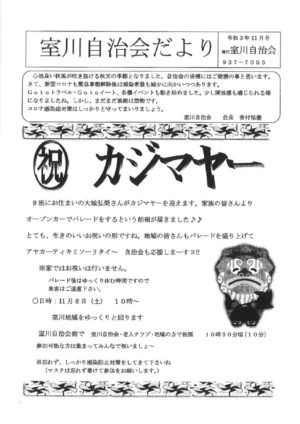 室川自治会だより
令和3年11月号
発行 室川自治会
937-7055
心地良い秋風が吹き抜ける秋天の季節となりました。自治会の皆様にはご健勝の事と思います。
さて、新型コロナも緊急事態解除後は感染者数も減少に向かいつつあります。
Gotoトラベル・Gotoイート、各種イベントも動き始めました。少し開放感も感じられる様
になりましたね。しかし、まだまだ油断は禁物です。
コロナ感染症対策はしっかりとやってまいりましょう。
室川自治会 会長
祝 カジマヤー
9班にお住まいの大城弘榮さんがカジマヤーを迎えます。家族の皆さんより
オープンカーでパレードをするという朗報が届きました♪♪
とても、生きのいいお祝の形ですね。地域の皆さんもパレードを盛り上げて
アヤカーティキミソーリタイ～ 自治会も応援しまーすヨ!!
※家ではお祝いは行いません。
パレード後はゆっくり休む時間ですので
来客はご遠慮下さい。
〇日時:11月6日(土) 10時～
室川地域をゆっくりと回ります
室川自治会前で 室川自治会・老人クラブ・地域の方で祝福 10時30分頃(10分)
参加可能な方は集まってみんなで祝いましょ～
尚忘れず、しっかり感染防止対策をしてきて下さいね
(マスクは忘れず着けて参加をお願いします。)